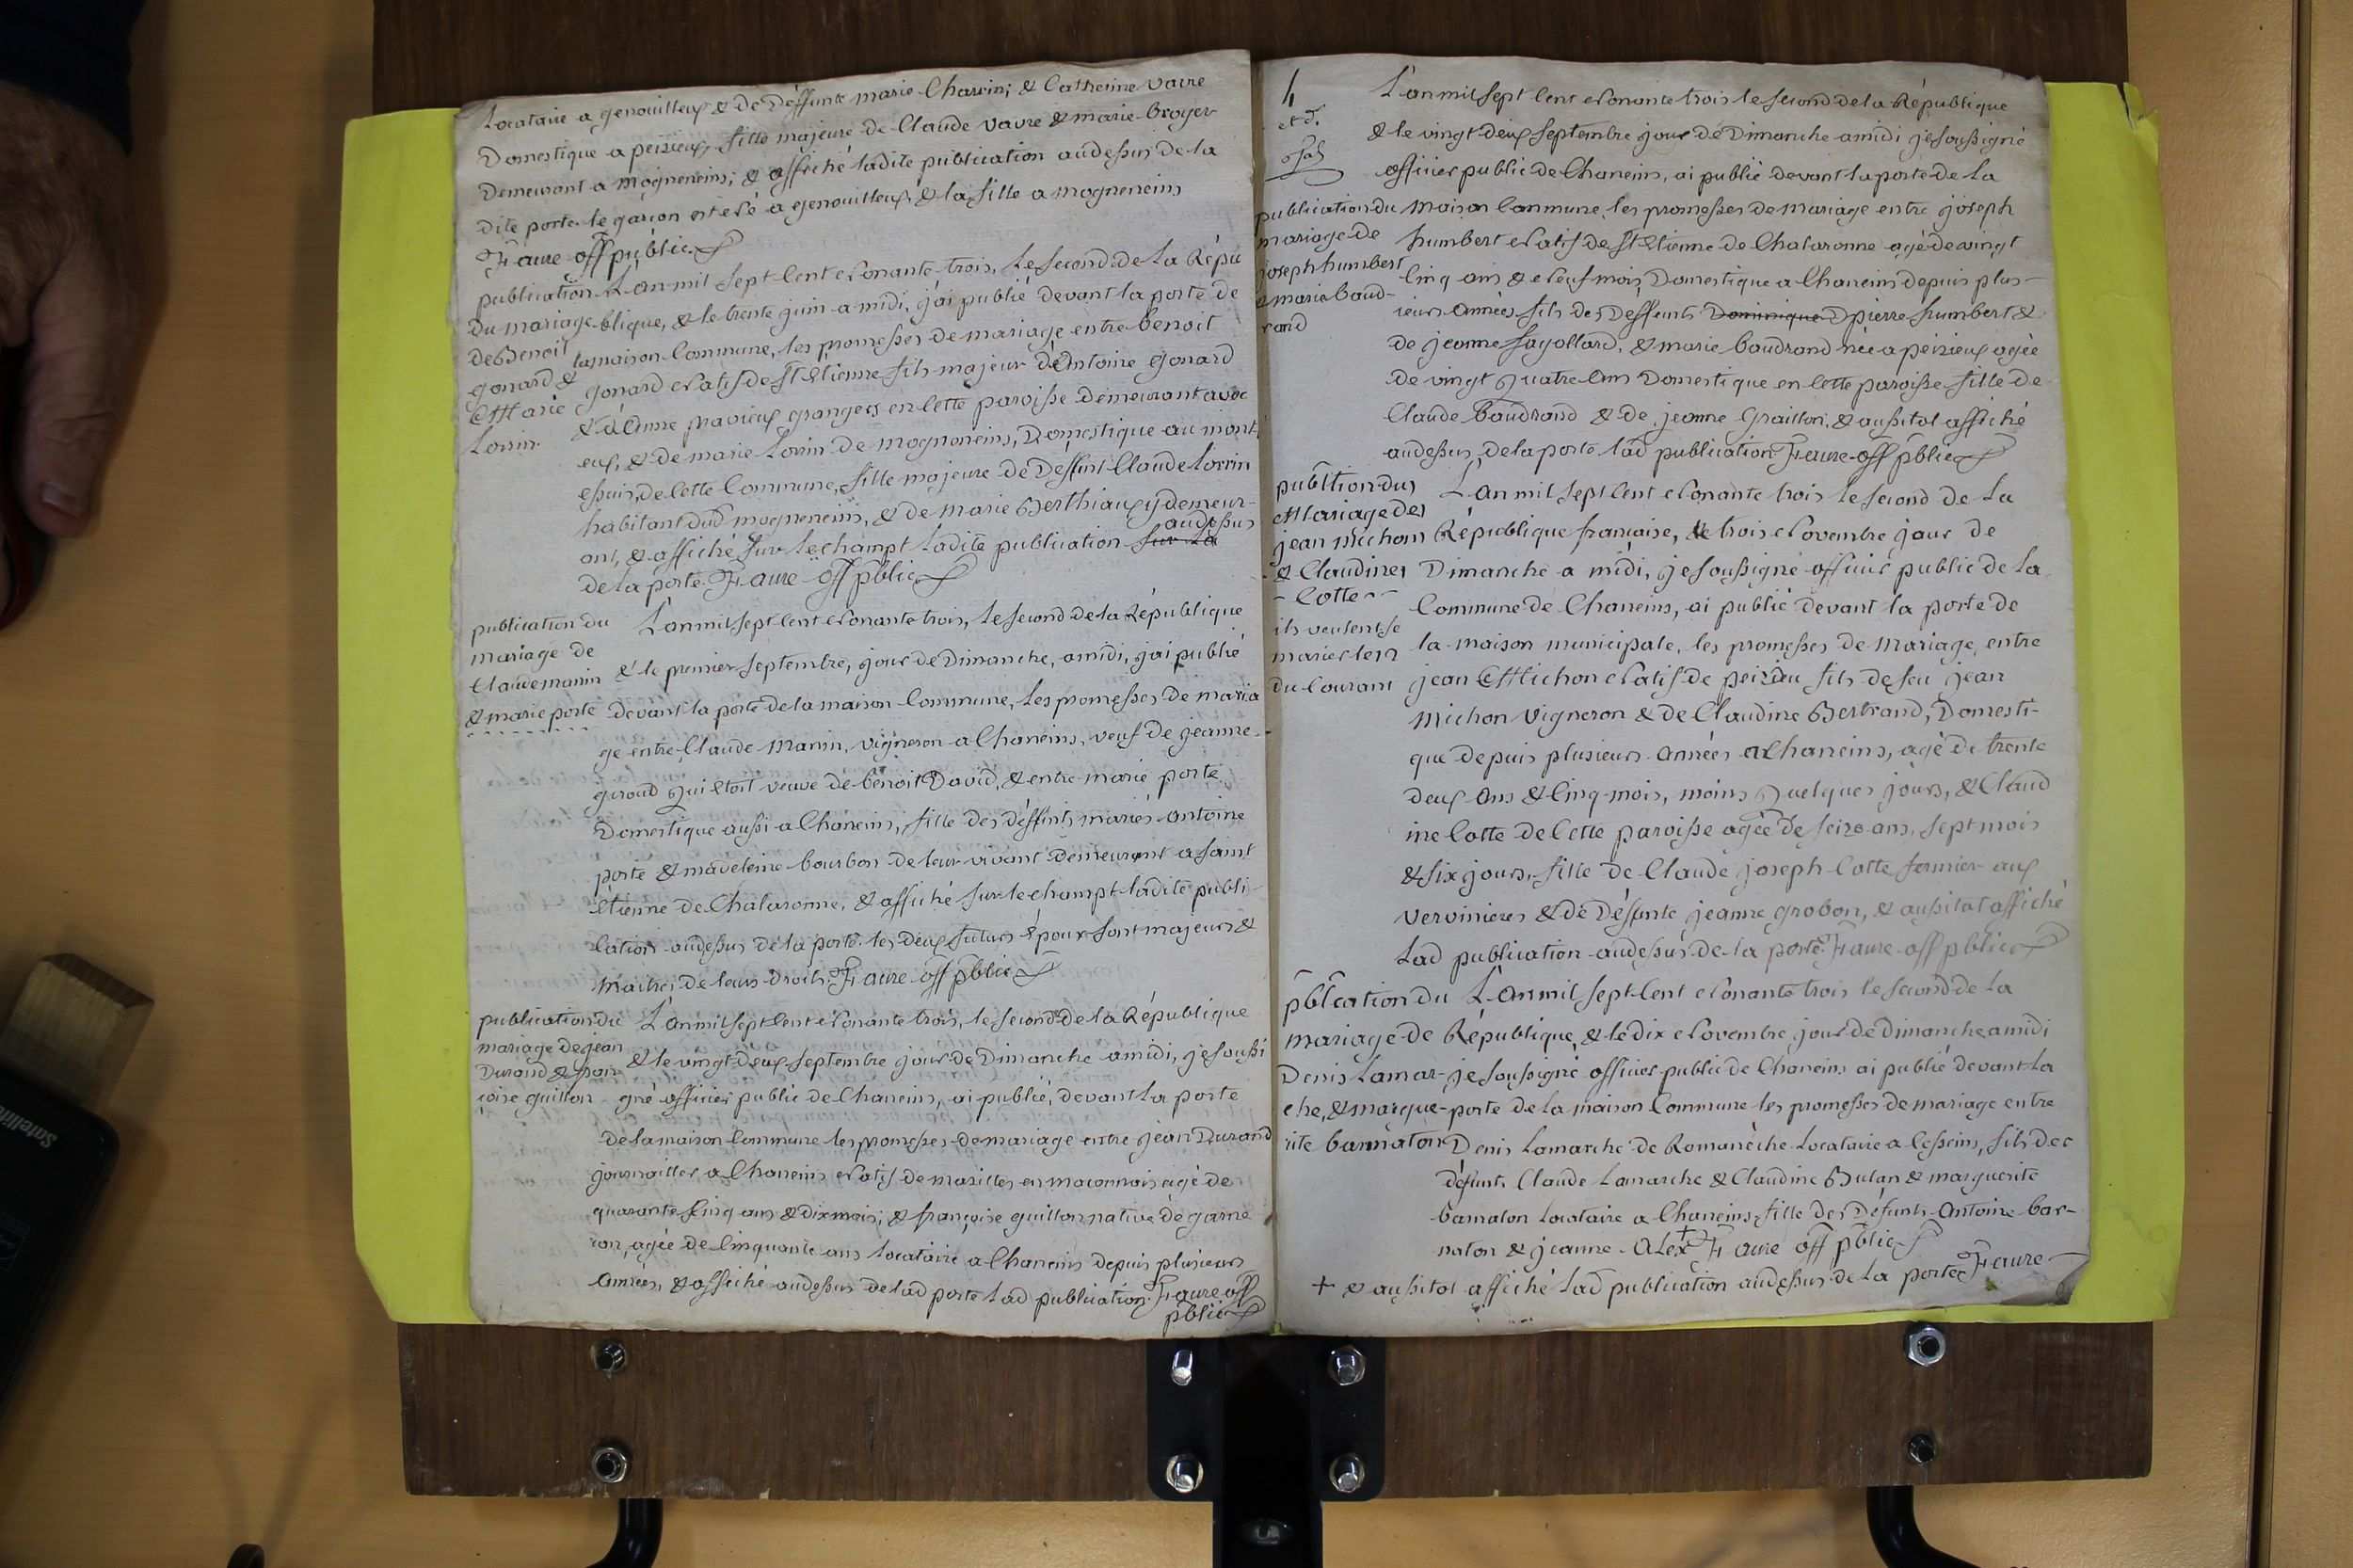 Locataire a genouilleux & de Déffunte marie Charvin; & Catherine vavre
Domestique a peizieux, fille majeure de Claude vavre & marie broyer
Demeurant a mogneneins; & affiché ladite publication audessus de la
dite porte. le garçon est né a genouilleux, & la fille a mogneneins
Faure off public
publication
Du mariage
de Benoit
gonard &
Marie
Lorin
L'an mil sept Cent Nonante trois, Le second de la Répu
blique, & le trente juin a midi, j'ai publié devant la porte de
la maison Commune, les promesses de mariage entre benoit
gonard Natif de St Etienne fils majeur d'Antoine gonard
& d'Anne pravieux grangers en Cette paroisse Demeurant avec
eux, & de marie Lorin de mogneneins, Domestique au mont
essuis, de Cette Commune, fille majeure de Deffunt Claude Lorrin
habitant dud mogneneins, & de marie Berthiaux y demeur-
ant, & affiché sur le champt Ladite publication sur La audessus
de la porte. Faure off pblic
publication du
mariage de
Claude manin
& marie porte
L'an mil sept Cent Nonante trois, Le second de la République
& le premier septembre, jour de Dimanche, a midi, j'ai publié
devant la porte de la maison Commune, Les promesses de maria
ge entre Claude Manin, vigneron a Chaneins, veuf de jeanne
giroud qui etoit veuve de benoit David, & entre marie porte
Domestique aussi a Chaneins, fille des déffunts mariés Antoine
porte & madeleine bourbon de leur vivant demeurant a saint
étienne de Chalaronne, & affiché sur le champt ladite publi-
cation audessus de la porte. les deux futurs époux sont majeurs &
maitres de leurs Droits. Faure off pblic
publication du
mariage de jean
Durand & fran
çoise guillon
L'an mil sept Cent Nonante trois, le second de la République
& le vingt deux septembre jour de Dimanche a midi, je soussi
gné officier public de Chaneins, ai publié, devant La porte
de la maison Commune les promesses de mariage entre jean Durand
journaillier a Chaneins Natif de mazilles en maconnois agé de
quarante Cinq ans & dix mois; & françoise guillon native de garne
ron, agée de Cinquante ans locataire a Chaneins depuis plusieurs
Années, & affiché audessus de lad porte Lad publication. Faure off
pblic
4
et d.
L'an mil sept Cent Nonante trois le second de la République
& le vingt deux septembre jour de Dimanche a midi je soussigné
officier public de Chaneins, ai publié devant la porte de La
publication du
mariage de
joseph humbert
& marie baud-
rand
Maison Commune, les promesses de Mariage entre joseph
humbert Natif de St Etienne de Chalaronne agé de vingt
Cinq ans & Neuf mois, Domestique a Chaneins depuis plus-
ieurs Années fils des Deffunts Dominique D pierre humbert &
de jeanne sagollard, & marie baudrand née a peizieux agée
de vingt quatre Ans Domestique en Cette paroisse fille de
Claude baudrand & de jeanne Graillon, & aussitot affiché
audessus de la porte lad publication Faure off pblic
publtion du
Mariage de
jean michon
& Claudine
- Cotte -
ils veulent se
marier le 12
du Courant
L'an mil sept Cent Nonante trois le second de La
République française, le trois Novembre jour de
Dimanche a midi, je soussigné officier public de La
Commune de Chaneins, ai publié devant la porte de
la maison municipale, les promesses de Mariage, entre
jean Michon Natif de peizieu fils de feu jean
Michon Vigneron & de Claudine Bertrand, Domesti-
que depuis plusieurs Années a Chaneins, agé de trente
deux Ans & Cinq mois, moins quelques jours, & Claud
ine Cotte de Cette paroisse agée de seize ans, sept mois
& six jours, fille de Claude joseph Cotte fermier aux
Vervinieres & de Défunte jeanne grobon, & aussitat affiché
Lad publication audessus de la porte. Faure off pblic
pblcation du
mariage de
Denis Lamar-
che, & margue-
rite barnaton
L'An mil sept Cent Nonante trois le second de La
République, & le dix Novembre, jour de Dimanche a midi
je soussigné officier public de Chaneins ai publié devant La
porte de la maison Commune les promesses de mariage entre
Denis Lamarche de Romanèche Locataire a Cesseins, fils de
défunt Claude Lamarche & Claudine Butan & marguerite
barnaton Locataire a Chaneins, fille des Défunts Antoine bar-
naton & jeanne Alex + Faure off pblic
+ & aussitot affiché lad publication audessus de La porte Faure